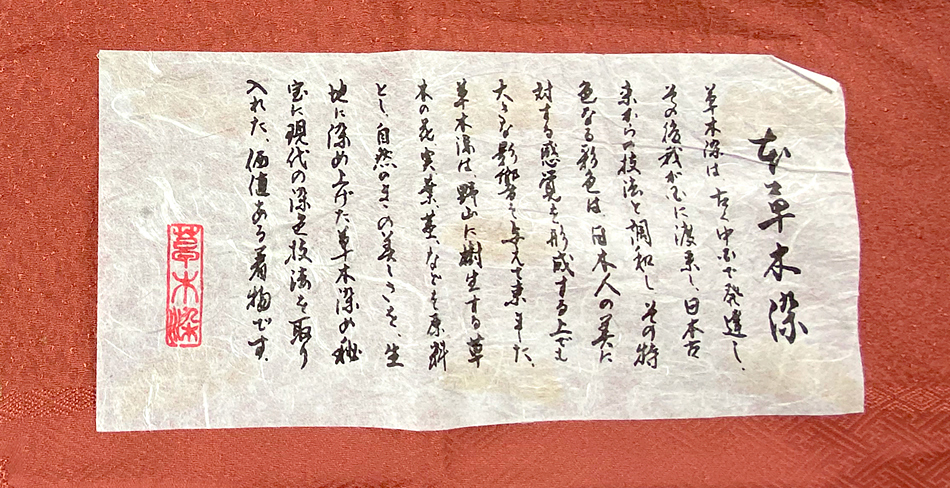 本草木染
草木染は 古く中国で発達し、
その後我が国に渡来し、日本古
来からの技法と調和し その特
色なる彩色は、日本人の美に
対する感覚を形成する上でも
大きな影響を与えて来ました、
草木染は、野山に樹生する草
木の花、実、葉、茎、などを原料
とし、自然のままの美しさを、生
地に染め上げた草木染め秘
宝に現代の染色技法を取り
入れた、価値ある着物です。
草木染